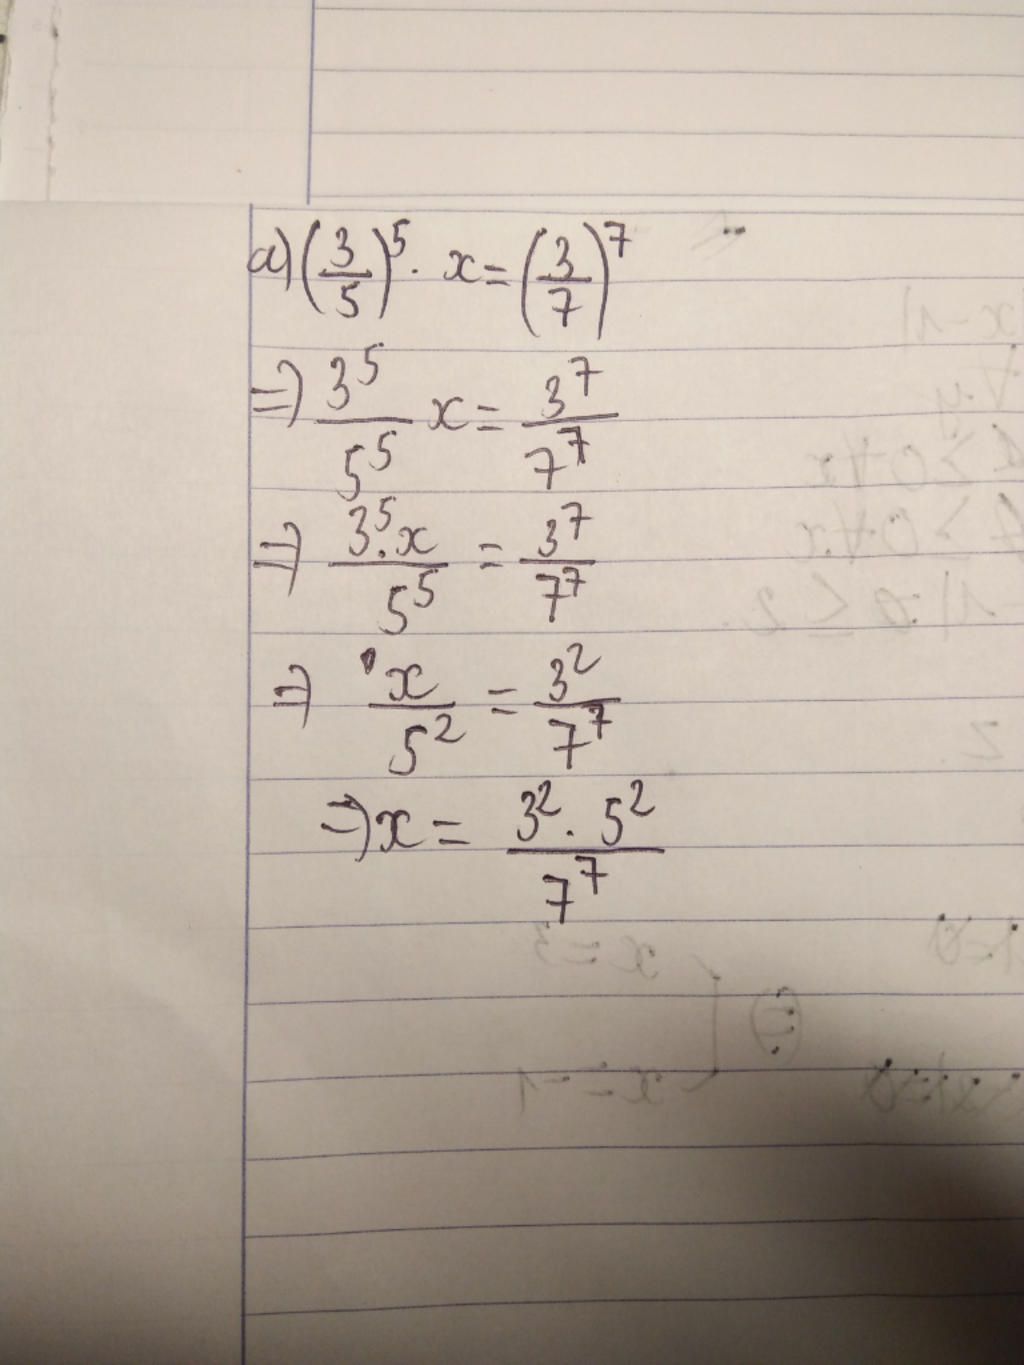 a) (3/5)^5 . x = (3/7)^7
=> 3^5/5^5 x = 3^7/7^7
=> 3^5.x/5^5 = 3^7/7^7
=> x/5^2 = 3^2/7^7
=> x = 3^2 . 5^2/7^7